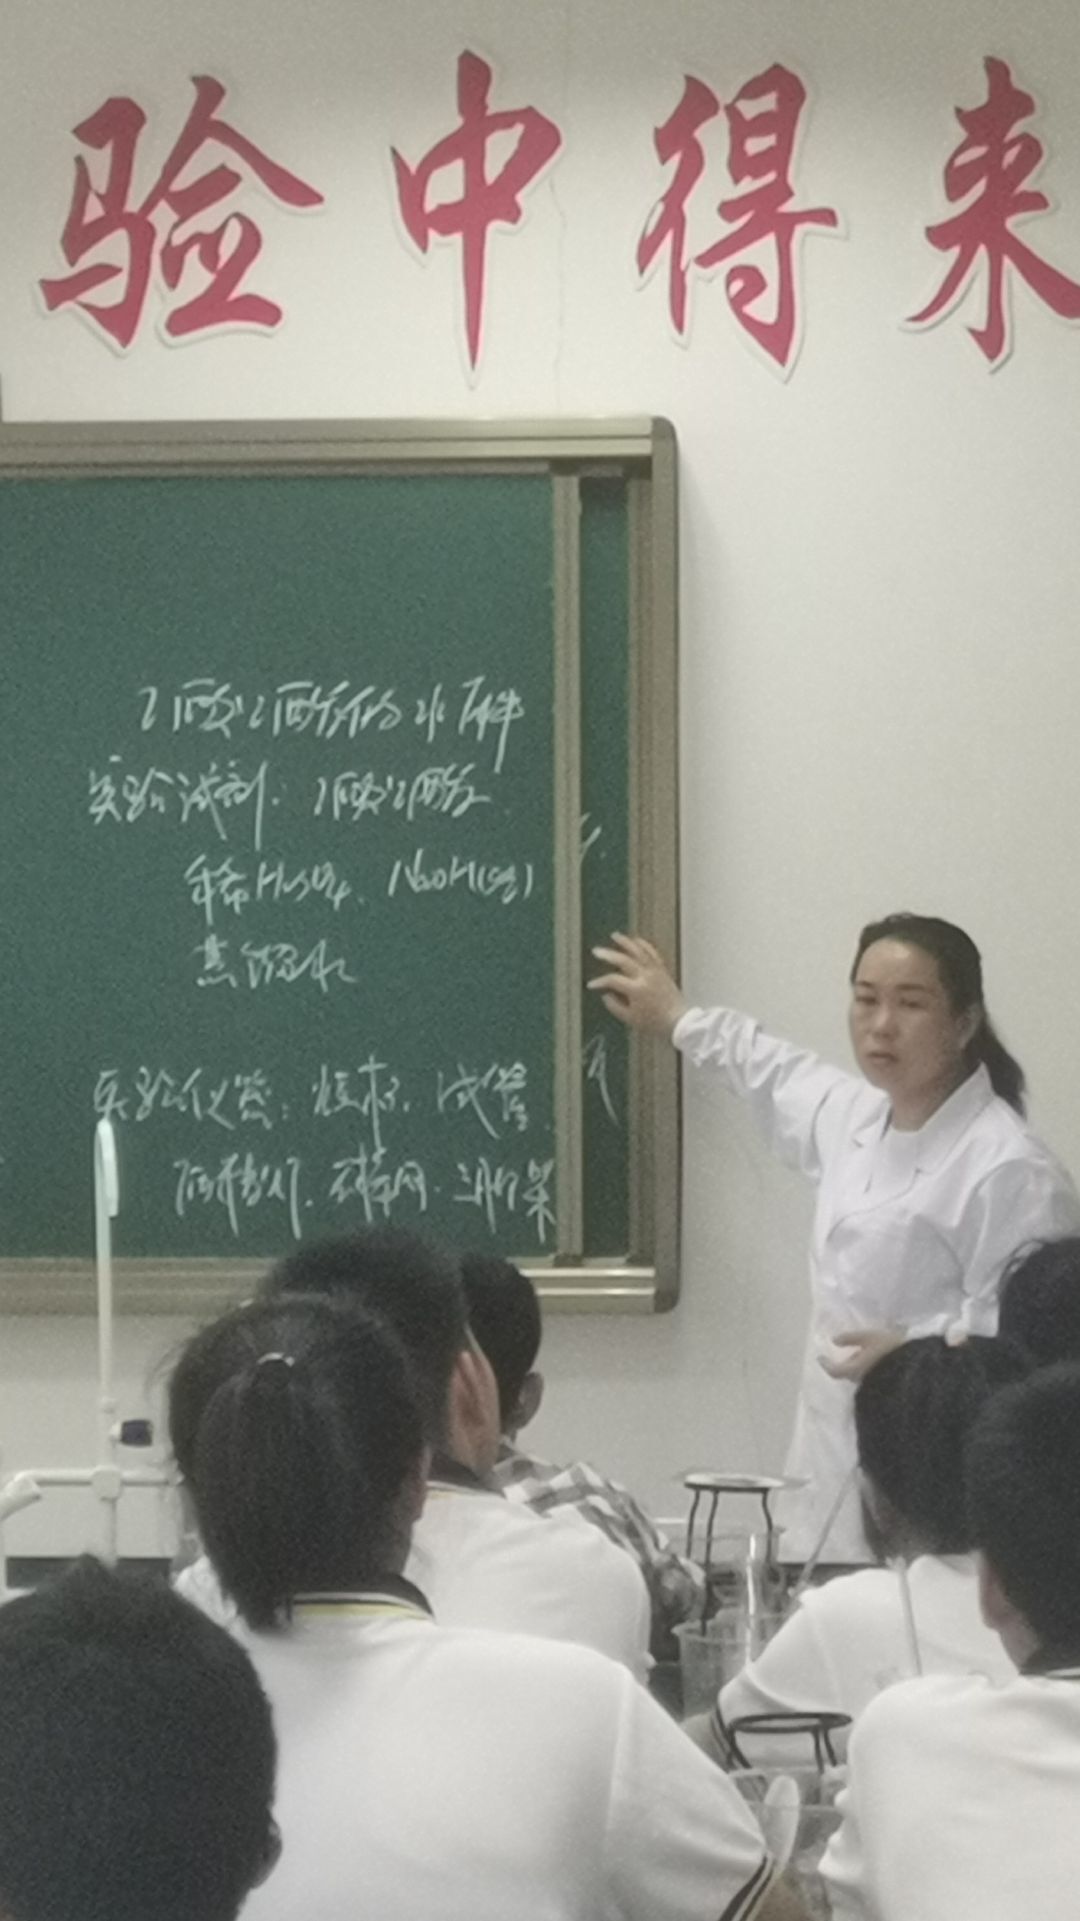 验中得来
乙酸乙酯的水解
实验试剂:乙酸乙酯
稀H₂SO₄、NaOH(溶)
蒸馏水
实验仪器:烧杯、试管
酒精灯、石棉网、三脚架